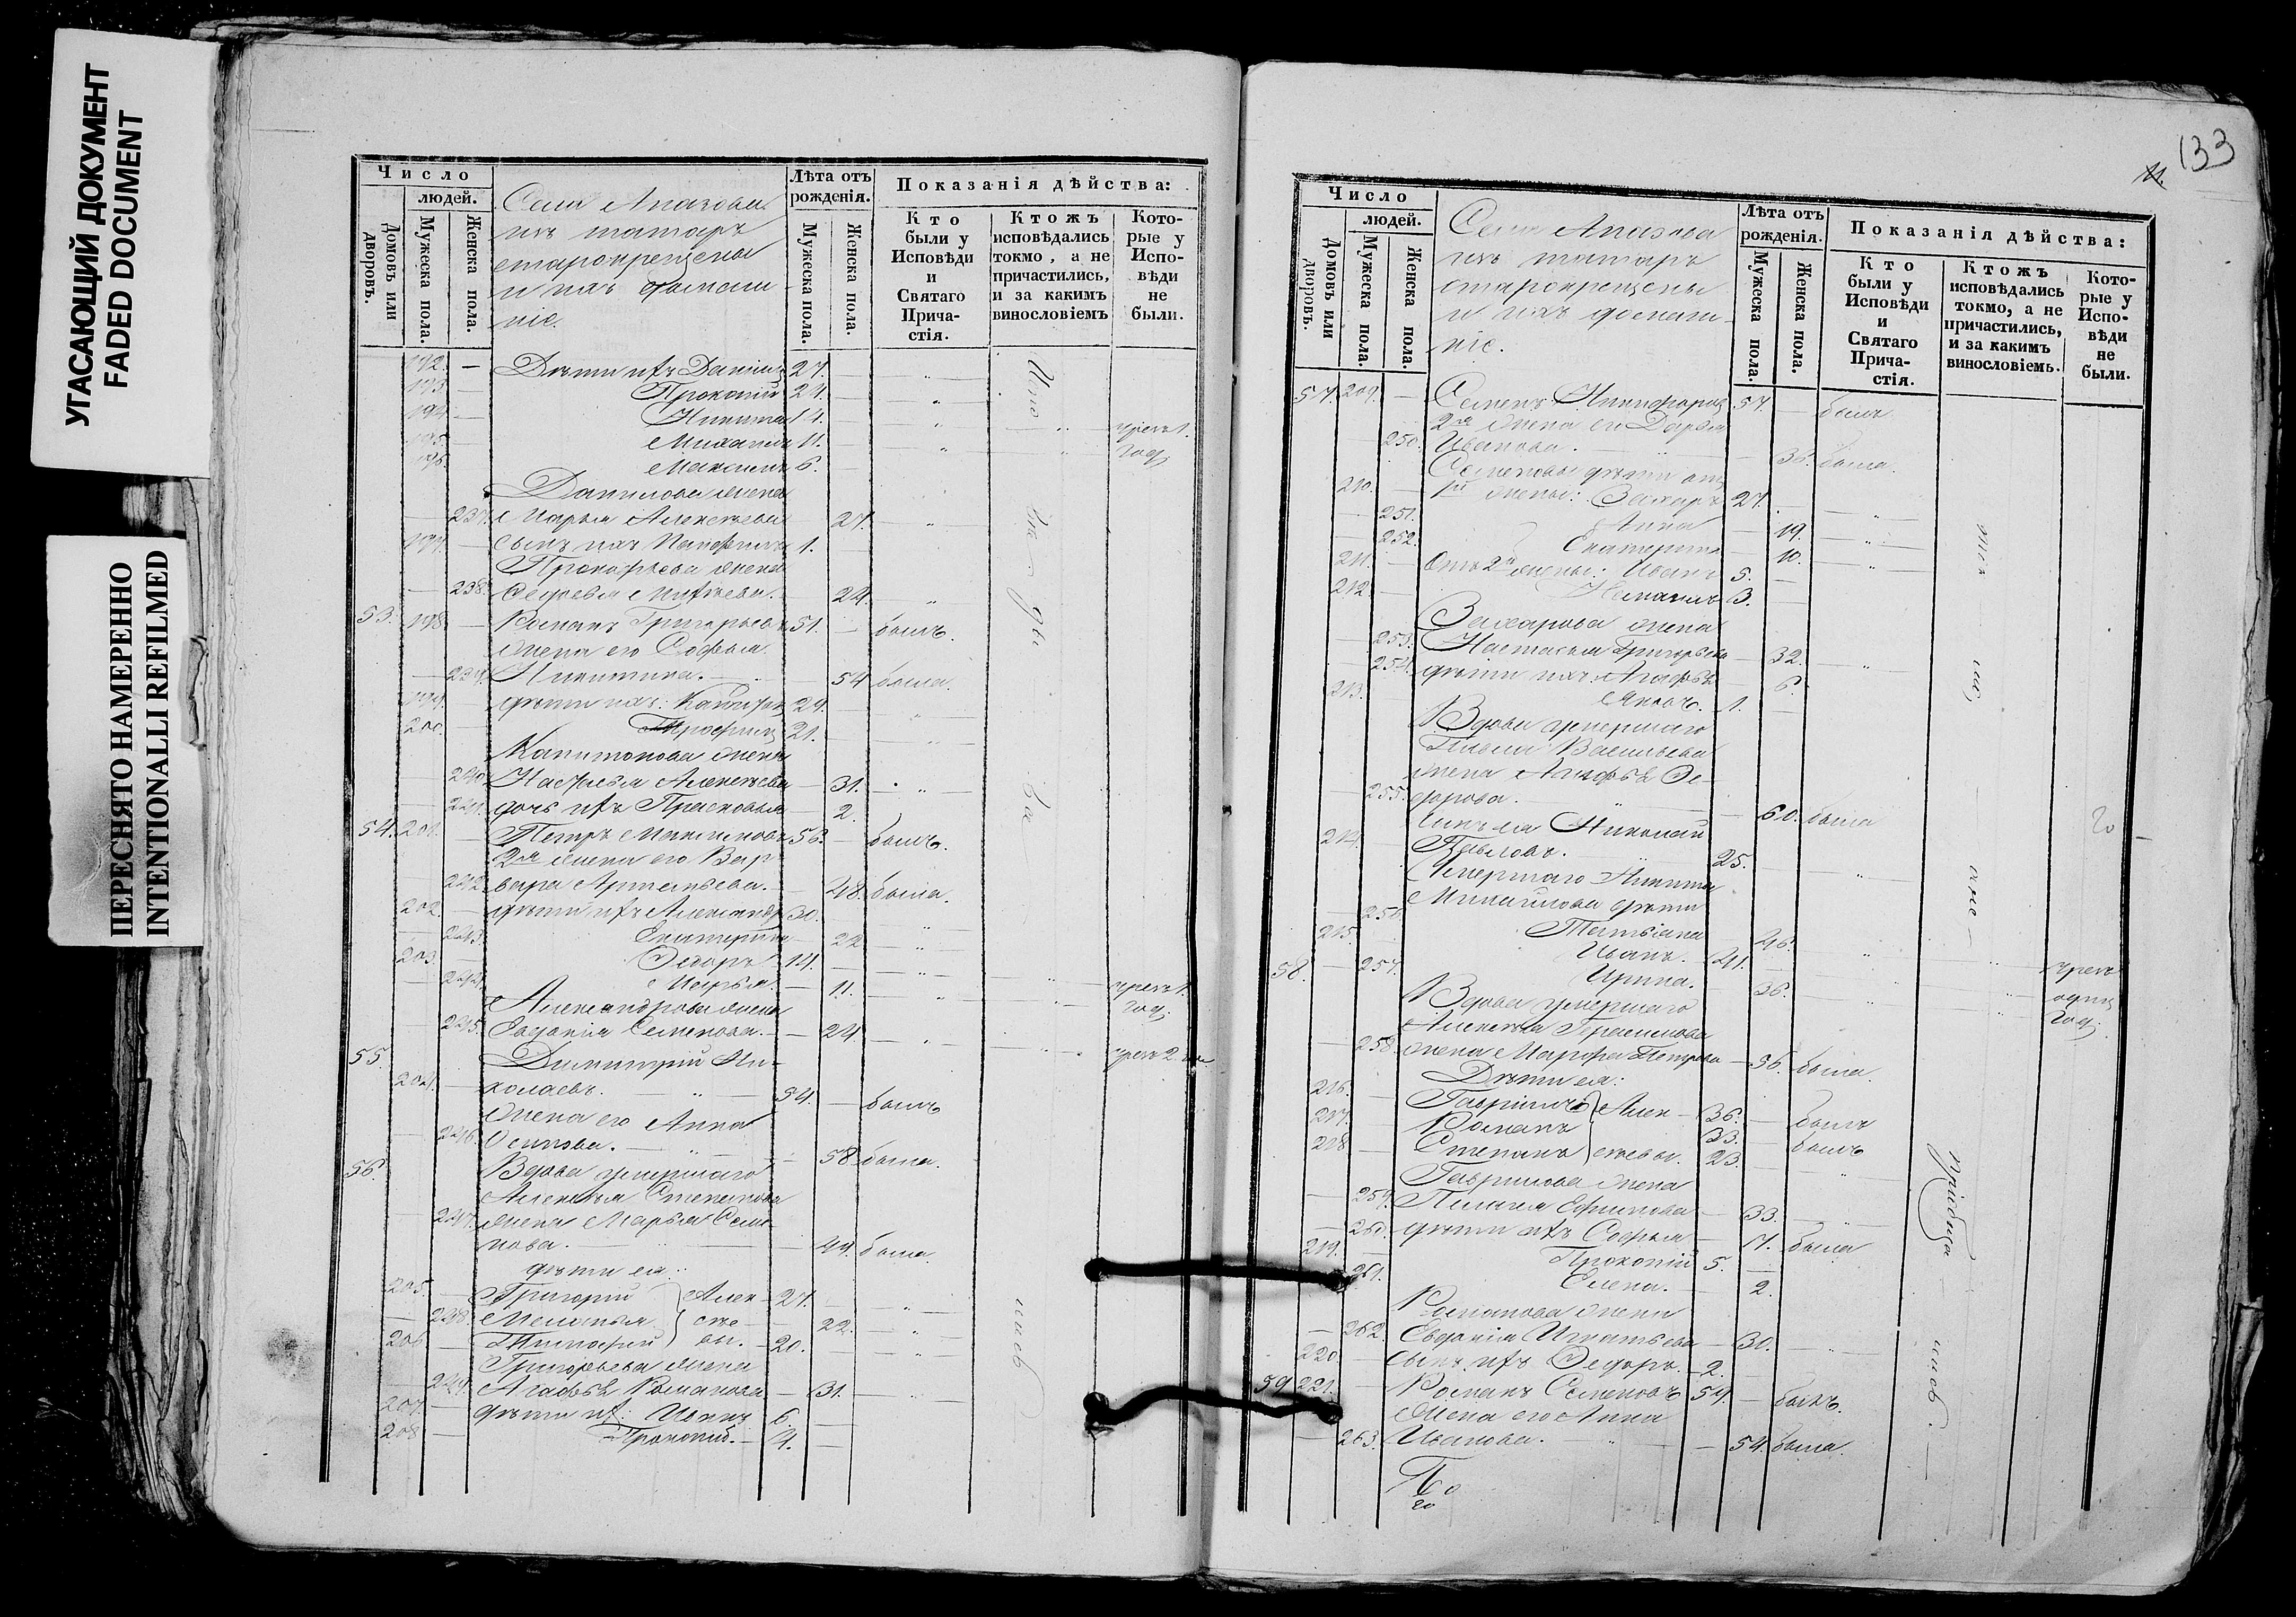 УГАСАЮЩИЙ ДОКУМЕНТ
FADED DOCUMENT
ПЕРЕСНЯТО НАМЕРЕННО
INTENTIONALLI REFILMED
Число
людей.
Домовъ или дворовъ.
Мужеска пола.
Женска пола.
Села Апазова
изъ татаръ
старокрещены
и ихъ домашніе.
Лѣта отъ рожденія.
Мужеска пола.
Женска пола.
Показанія дѣйства:
Кто были у Исповѣди и Святаго Причастія.
Ктожъ исповѣдались токмо, а не причастились, и за какимъ винословіемъ
Которые у Исповѣди не были.
192. — Дѣти ихъ Данiилъ 27. —
193. Прокопій 24. —
194. — Никита 14. —
195. Михаилъ 11. — чрезъ 1.
196. Максимъ 6. — годъ
Данилова жена
— 237. Марья Алексѣева 27. —
197. — сынъ ихъ 1. —
Прокофьева жена
— 238. 24.
53. 198 — Романъ Григорьевъ 51. — былъ.
жена его Софья
— 239. Никитина. — 54 была.
199. — дѣти ихъ: Капитонъ 29. —
200. — Трофимъ 21. —
Капитонова жена
— 240. Настасья Алексѣева — 31.
— 241. дочь ихъ Прасковья — 2.
54. 201. — Петръ Максимовъ 56. — былъ.
2я жена его Вар-
— 242. вара Артемьева. — 48. была.
202. — дѣти ихъ Александръ 30.
— 243. Екатерина — 22
203. — Ѳедоръ 14. —
— 244. Марья. — 11. — чрезъ 1.
Александрова жена годъ.
— 245. Евдокія Семенова. — 24 чрезъ 2
55. Димитрій Ни-
204. — колаевъ. — 54. — былъ
жена его Анна
— 246. Осипова. — 58. была.
56. Вдова умершаго
Алексѣя Степанова
— 247. жена Марья Семе-
нова. — 49. была.
дѣти ея:
205. — Григорій Алек- 27.
— 248. Меланья сѣе- — 22.
206 — Тимофей вы. 20. —
Григорьева жена
— 249. Агафья Романова — 31.
207. — дѣти ихъ: Иванъ 6. —
208 — Прокопій. — 4. —
133
Число
людей.
Домовъ или дворовъ.
Мужеска пола.
Женска пола.
Села Апазова
изъ татаръ
старокрещены
и ихъ домашніе.
Лѣта отъ рожденія.
Мужеска пола.
Женска пола.
Показанія дѣйства:
Кто были у Исповѣди и Святаго Причастія.
Ктожъ исповѣдались токмо, а не причастились, и за какимъ винословіемъ.
Которые у Исповѣди не были.
57. 209. — Семенъ Никифоровъ 57. — былъ
2я жена его Дарья
250. Иванова. — 36. была.
Семеновы дѣти отъ
210. — 1й жены: Захаръ 27.
— 251. Анна — 19.
— 252. Екатерина — 10.
211. — Отъ 2й жены: Иванъ 5. —
212. — 3. —
Захарова жена
— 253. Настасья Григорьева — 32.
— 254. дѣти ихъ: Агафья — 6.
213. Яковъ. 1. —
Вдова умершаго
Павла Васильева
жена Агафья Ѳе-
— 255. дорова. — 60. была
сынъ ея Николай
214. — Павловъ. 25.
Умершаго Никиты
Михайлова дѣти
— 256. Татьяна — 46.
215. Иванъ. 41.
58. — 257. Ирина. — 36. чрезъ
одинъ
годъ.
Вдова умершаго
Алексѣя Герасимова
— 258. жена Марфа Петрова — 56. была.
Дѣти ея:
216. — Гавріилъ Алек- 36. — былъ
217. Романъ 33. былъ
218 — Степанъ сѣевы. 23. —
Гаврилова жена
— 259. Пелагея Ефимова — 33.
— 260. дѣти ихъ Софья — 7. была
219. — Прокопій 5. —
— 261. Елена. — 2.
Романова жена
— 262. Евдокія Игнатьева — 30.
220. — сынъ ихъ Ѳедоръ. 2.
59 221. Романъ Семеновъ 59. — былъ.
жена его Анна
— 263. Иванова. — 54. была.